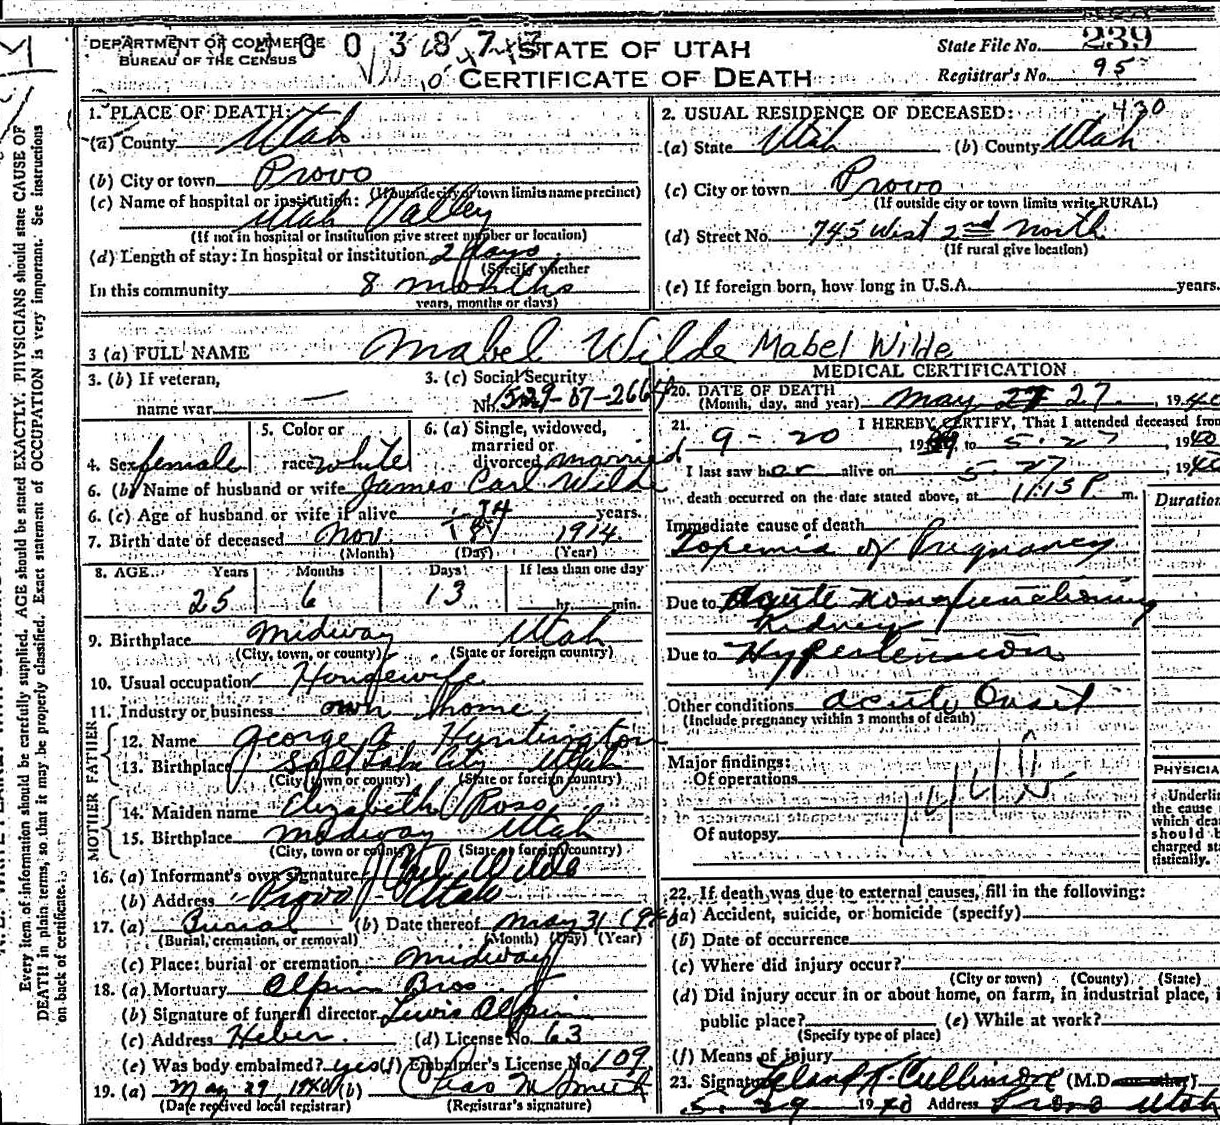 DEPARTMENT OF COMMERCE
BUREAU OF THE CENSUS
STATE OF UTAH
CERTIFICATE OF DEATH
State File No. 239
Registrar's No. 95
1. PLACE OF DEATH:
(a) County Utah
(b) City or town Provo
(If outside city or town limits name precinct)
(c) Name of hospital or institution:
Utah Valley
(If not in hospital or institution give street number or location)
(d) Length of stay: In hospital or institution 2 days
(Specify whether
In this community 8 months
years, months or days)
2. USUAL RESIDENCE OF DECEASED: 430
(a) State Utah (b) County Utah
(c) City or town Provo
(If outside city or town limits write RURAL)
(d) Street No. 745 West 2nd North
(If rural give location)
(e) If foreign born, how long in U.S.A. years.
3 (a) FULL NAME Mabel Wilde Mabel Wilde
3. (b) If veteran,
name war —
3. (c) Social Security
No. 529-07-2664
4. Sex female
5. Color or
race white
6. (a) Single, widowed,
married or
divorced married
6. (b) Name of husband or wife James Carl Wilde
6. (c) Age of husband or wife if alive 34 years.
7. Birth date of deceased Nov. 1914.
(Month) (Day) (Year)
8. AGE Years Months Days If less than one day
25 6 13 hr. min.
9. Birthplace Midway Utah
(City, town, or county) (State or foreign country)
10. Usual occupation Housewife
11. Industry or business own home
FATHER
12. Name George A Huntington
13. Birthplace Salt Lake City Utah
(City, town or county) (State or foreign country)
MOTHER
14. Maiden name Elizabeth Ross
15. Birthplace Midway Utah
(City, town or county) (State or foreign country)
16. (a) Informant's own signature J Carl Wilde
(b) Address Provo Utah
17. (a) Burial (b) Date thereof May 31 1940
(Burial, cremation, or removal) (Month) (Day) (Year)
(c) Place: burial or cremation Midway
18. (a) Mortuary Olpin Bros
(b) Signature of funeral director Lewis Olpin
(c) Address Heber. (d) License No. 63
(e) Was body embalmed? yes (f) Embalmer's License No. 109
19. (a) May 29, 1940 (b)
(Date received local registrar) (Registrar's signature)
MEDICAL CERTIFICATION
20. DATE OF DEATH
(Month, day, and year) May 27 27, 1940
21. I HEREBY CERTIFY, That I attended deceased from
9-20 19 39, to 5-27 1940
I last saw her alive on 5-27 1940
death occurred on the date stated above, at 11:15 P. m.
Duration
Immediate cause of death
Toxemia of Pregnancy
Due to Acute nonfunctioning
Kidney
Due to Hypertension
Other conditions acute Onset
(Include pregnancy within 3 months of death)
Major findings:
Of operations
Of autopsy
PHYSICIA
Underlin
the cause
which dea
should b
charged sta
tistically.
22. If death was due to external causes, fill in the following:
(a) Accident, suicide, or homicide (specify)
(b) Date of occurrence
(c) Where did injury occur?
(City or town) (County) (State)
(d) Did injury occur in or about home, on farm, in industrial place, i
public place? (e) While at work?
(Specify type of place)
(f) Means of injury
23. Signature Leland K. Cullimore (M.D. or other)
5-29 1940 Address Provo Utah
Every item of information should be carefully supplied. AGE should be stated EXACTLY. PHYSICIANS should state CAUSE OF
DEATH in plain terms, so that it may be properly classified. Exact statement of OCCUPATION is very important. See instructions
on back of certificate.